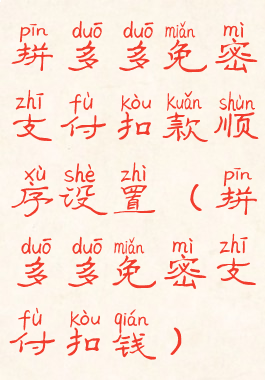 pīn duō duō miǎn mì
拼多多免密
zhī fù kòu kuǎn shùn
支付扣款顺
xù shè zhì pīn
序设置（拼
duō duō miǎn mì zhī
多多免密支
fù kòu qián
付扣钱）